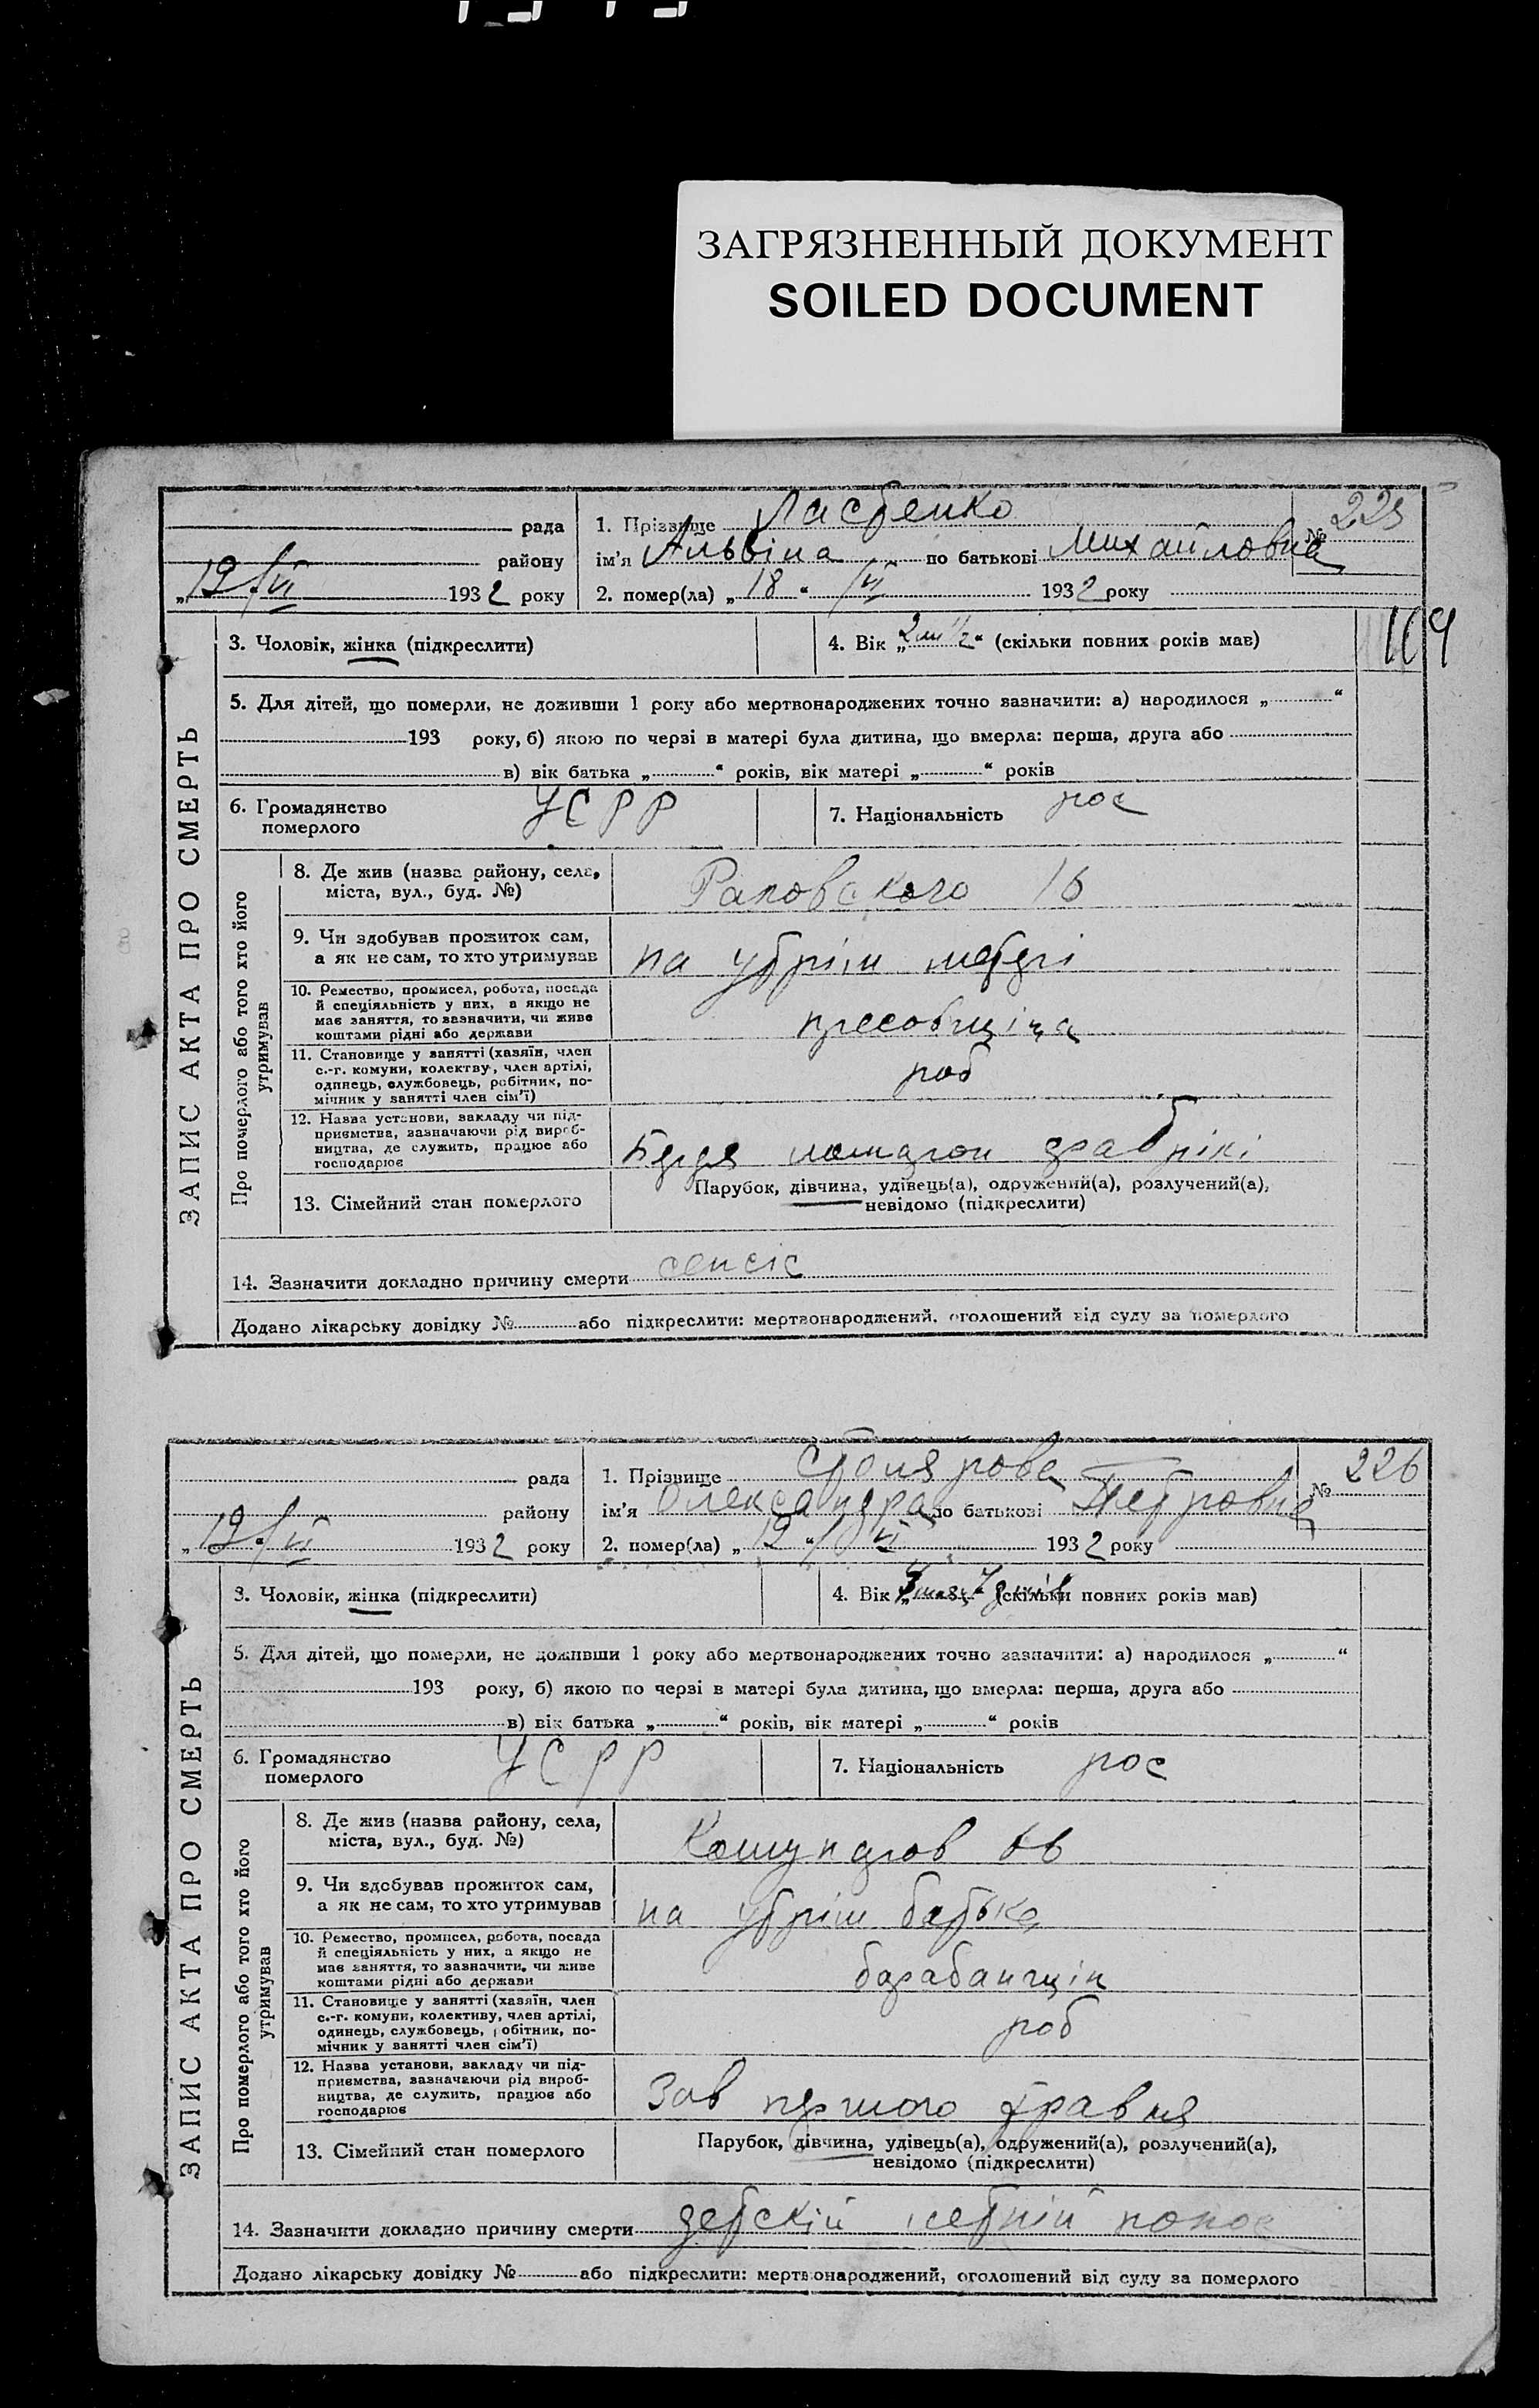 ЗАГРЯЗНЕННЫЙ ДОКУМЕНТ
SOILED DOCUMENT
ЗАПИС АКТА ПРО СМЕРТЬ
рада
району
„19“ VI 1932 року
1. Прізвище
№ 225
ім'я Альвіна по батькові Михайловна
2. помер(ла) „18“ VI 1932 року
3. Чоловік, жінка (підкреслити)
4. Вік „ “ (скільки повних років мав)
109
5. Для дітей, що померли, не доживши 1 року або мертвонароджених точно зазначити: а) народилося „ “
193 року, б) якою по черзі в матері була дитина, що вмерла: перша, друга або
в) вік батька „ “ років, вік матері „ “ років
6. Громадянство
померлого
УСРР
7. Національність рос
Про померлого або того хто його
утримував
8. Де жив (назва району, села,
міста, вул., буд. №)
Раковского 16
9. Чи здобував прожиток сам,
а як не сам, то хто утримував
на утрім
10. Ремество, промисел, робота, посада
й спеціяльність у них, а якщо не
має заняття, то зазначити, чи живе
коштами рідні або держави
пресовщіца
11. Становище у занятті (хазяїн, член
с.-г. комуни, колектву, член артілі,
одинець, службовець, робітник, по-
мічник у занятті член сім'ї)
роб
12. Назва установи, закладу чи під-
приємства, зазначаючи рід вироб-
ництва, де служить, працює або
господарює
фабрікі
13. Сімейний стан померлого
Парубок, дівчина, удівець(а), одружений(а), розлучений(а),
невідомо (підкреслити)
14. Зазначити докладно причину смерти сепсіс
Додано лікарську довідку № або підкреслити: мертвонароджений, оголошений від суду за померлого
ЗАПИС АКТА ПРО СМЕРТЬ
рада
району
„19“ VI 1932 року
1. Прізвище Столярова
№ 226
ім'я Олександра по батькові Петровна
2. помер(ла) „19“ VI 1932 року
3. Чоловік, жінка (підкреслити)
4. Вік „ “ (скільки повних років мав)
5. Для дітей, що померли, не доживши 1 року або мертвонароджених точно зазначити: а) народилося „ “
193 року, б) якою по черзі в матері була дитина, що вмерла: перша, друга або
в) вік батька „ “ років, вік матері „ “ років
6. Громадянство
померлого
УСРР
7. Національність рос
Про померлого або того хто його
утримував
8. Де жив (назва району, села,
міста, вул., буд. №)
Комунаров
9. Чи здобував прожиток сам,
а як не сам, то хто утримував
на утрім батька
10. Ремество, промисел, робота, посада
й спеціяльність у них, а якщо не
має заняття, то зазначити, чи живе
коштами рідні або держави
барабанщік
11. Становище у занятті (хазяїн, член
с.-г. комуни, колективу, член артілі,
одинець, службовець, робітник, по-
мічник у занятті член сім'ї)
роб
12. Назва установи, закладу чи під-
приємства, зазначаючи рід вироб-
ництва, де служить, працює або
господарює
Зав першого травня
13. Сімейний стан померлого
Парубок, дівчина, удівець(а), одружений(а), розлучений(а),
невідомо (підкреслити)
14. Зазначити докладно причину смерти детскій летній понос
Додано лікарську довідку № або підкреслити: мертвонароджений, оголошений від суду за померлого